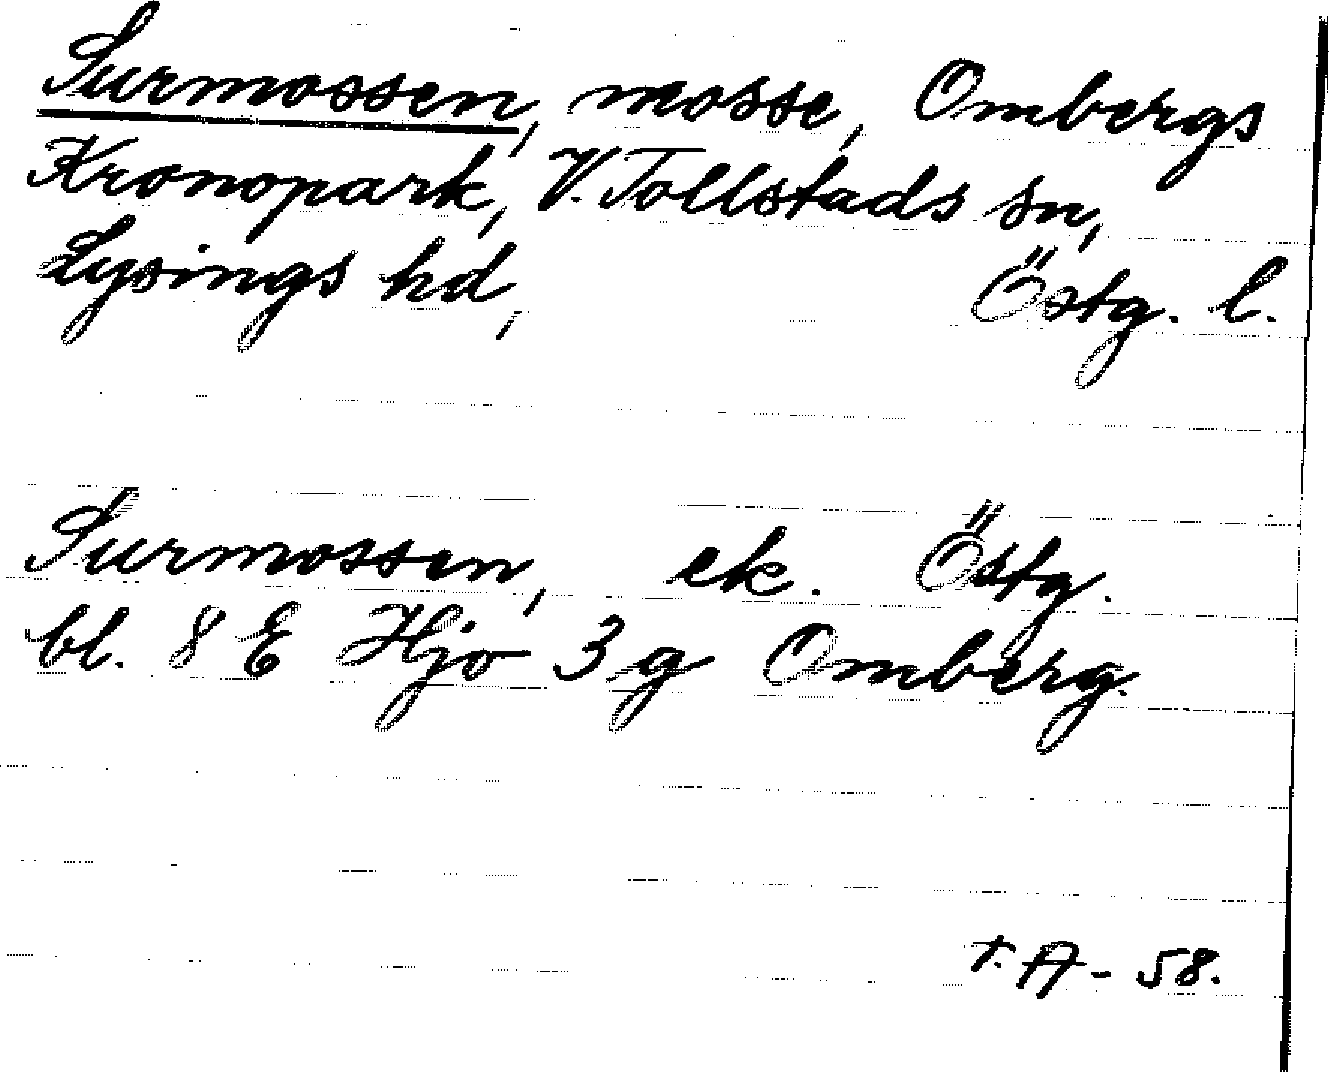 Surmossen, mosse, Ombergs
Kronopark, V. Tollstads sn,
Lysings hd, Östg. l.
Surmossen, ek. Östg.
bl. 8 E Hjo 3 g Omberg.
T. A - 58.